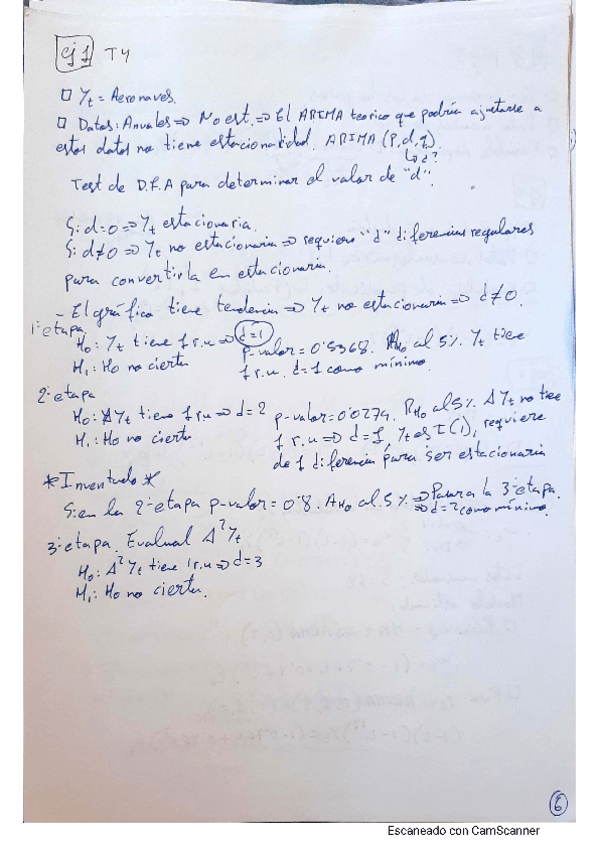 Ej 1 T4
□ Yt = Aeronaves.
□ Datos: Anuales => No est. => El ARIMA teorico que podría ajustarse a
estos datos no tiene estacionalidad. ARIMA (P,d,q)
↳ d?
Test de D.F.A para determinar el valor de "d".
Si d=0 => Yt estacionaria.
Si d≠0 => Yt no estacionaria => requiere "d" diferencias regulares
para convertirla en estacionaria.
- El gráfico tiene tendencia => Yt no estacionaria => d≠0.
1ª etapa
H0: Yt tiene 1 r.u => d=1 p-valor = 0'5368. AH0 al 5%. Yt tiene
H1: H0 no cierta 1 r.u. d=1 como mínimo.
2ª etapa
H0: ΔYt tiene 1 r.u => d=2 p-valor = 0'0279. RH0 al 5%. ΔYt no tiene
H1: H0 no cierta 1 r.u => d=1, Yt es I(1), requiere
de 1 diferencia para ser estacionaria
*Inventado*
Si en la 2ª etapa p-valor = 0'8. AH0 al 5% => Pasar a la 3ª etapa.
=> d=2 como mínimo.
3ª etapa. Evalual Δ²Yt
H0: Δ²Yt tiene 1 r.u => d=3
H1: H0 no cierta.
6
Escaneado con CamScanner